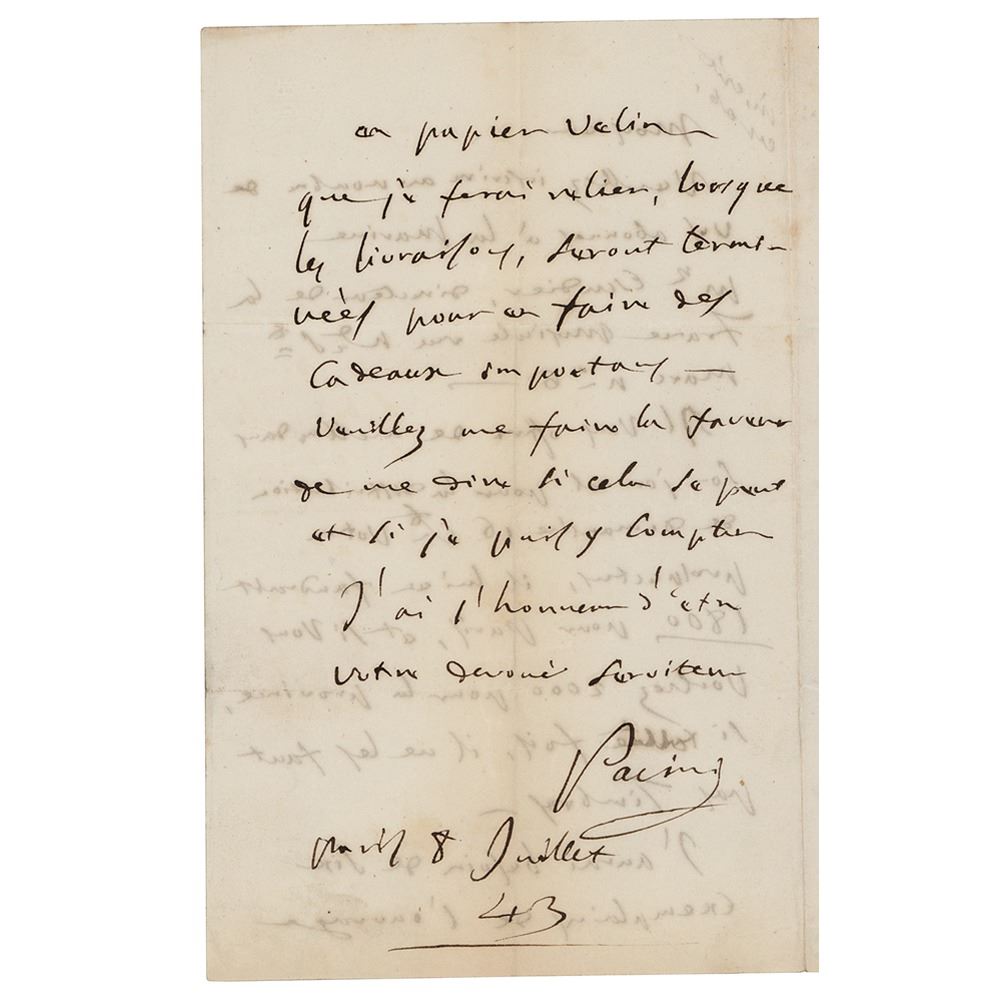 en papier velin
que je ferai relier, lorsque
les livraisons, seront termi-
nées pour en faire des
Cadeaux importans —
Veuillez me faire la faveur
de me dire si cela se peut
et si je puis y compter
J'ai l'honneur d'etre
votre devoué serviteur
Pacini
paris 8 Juillet
43